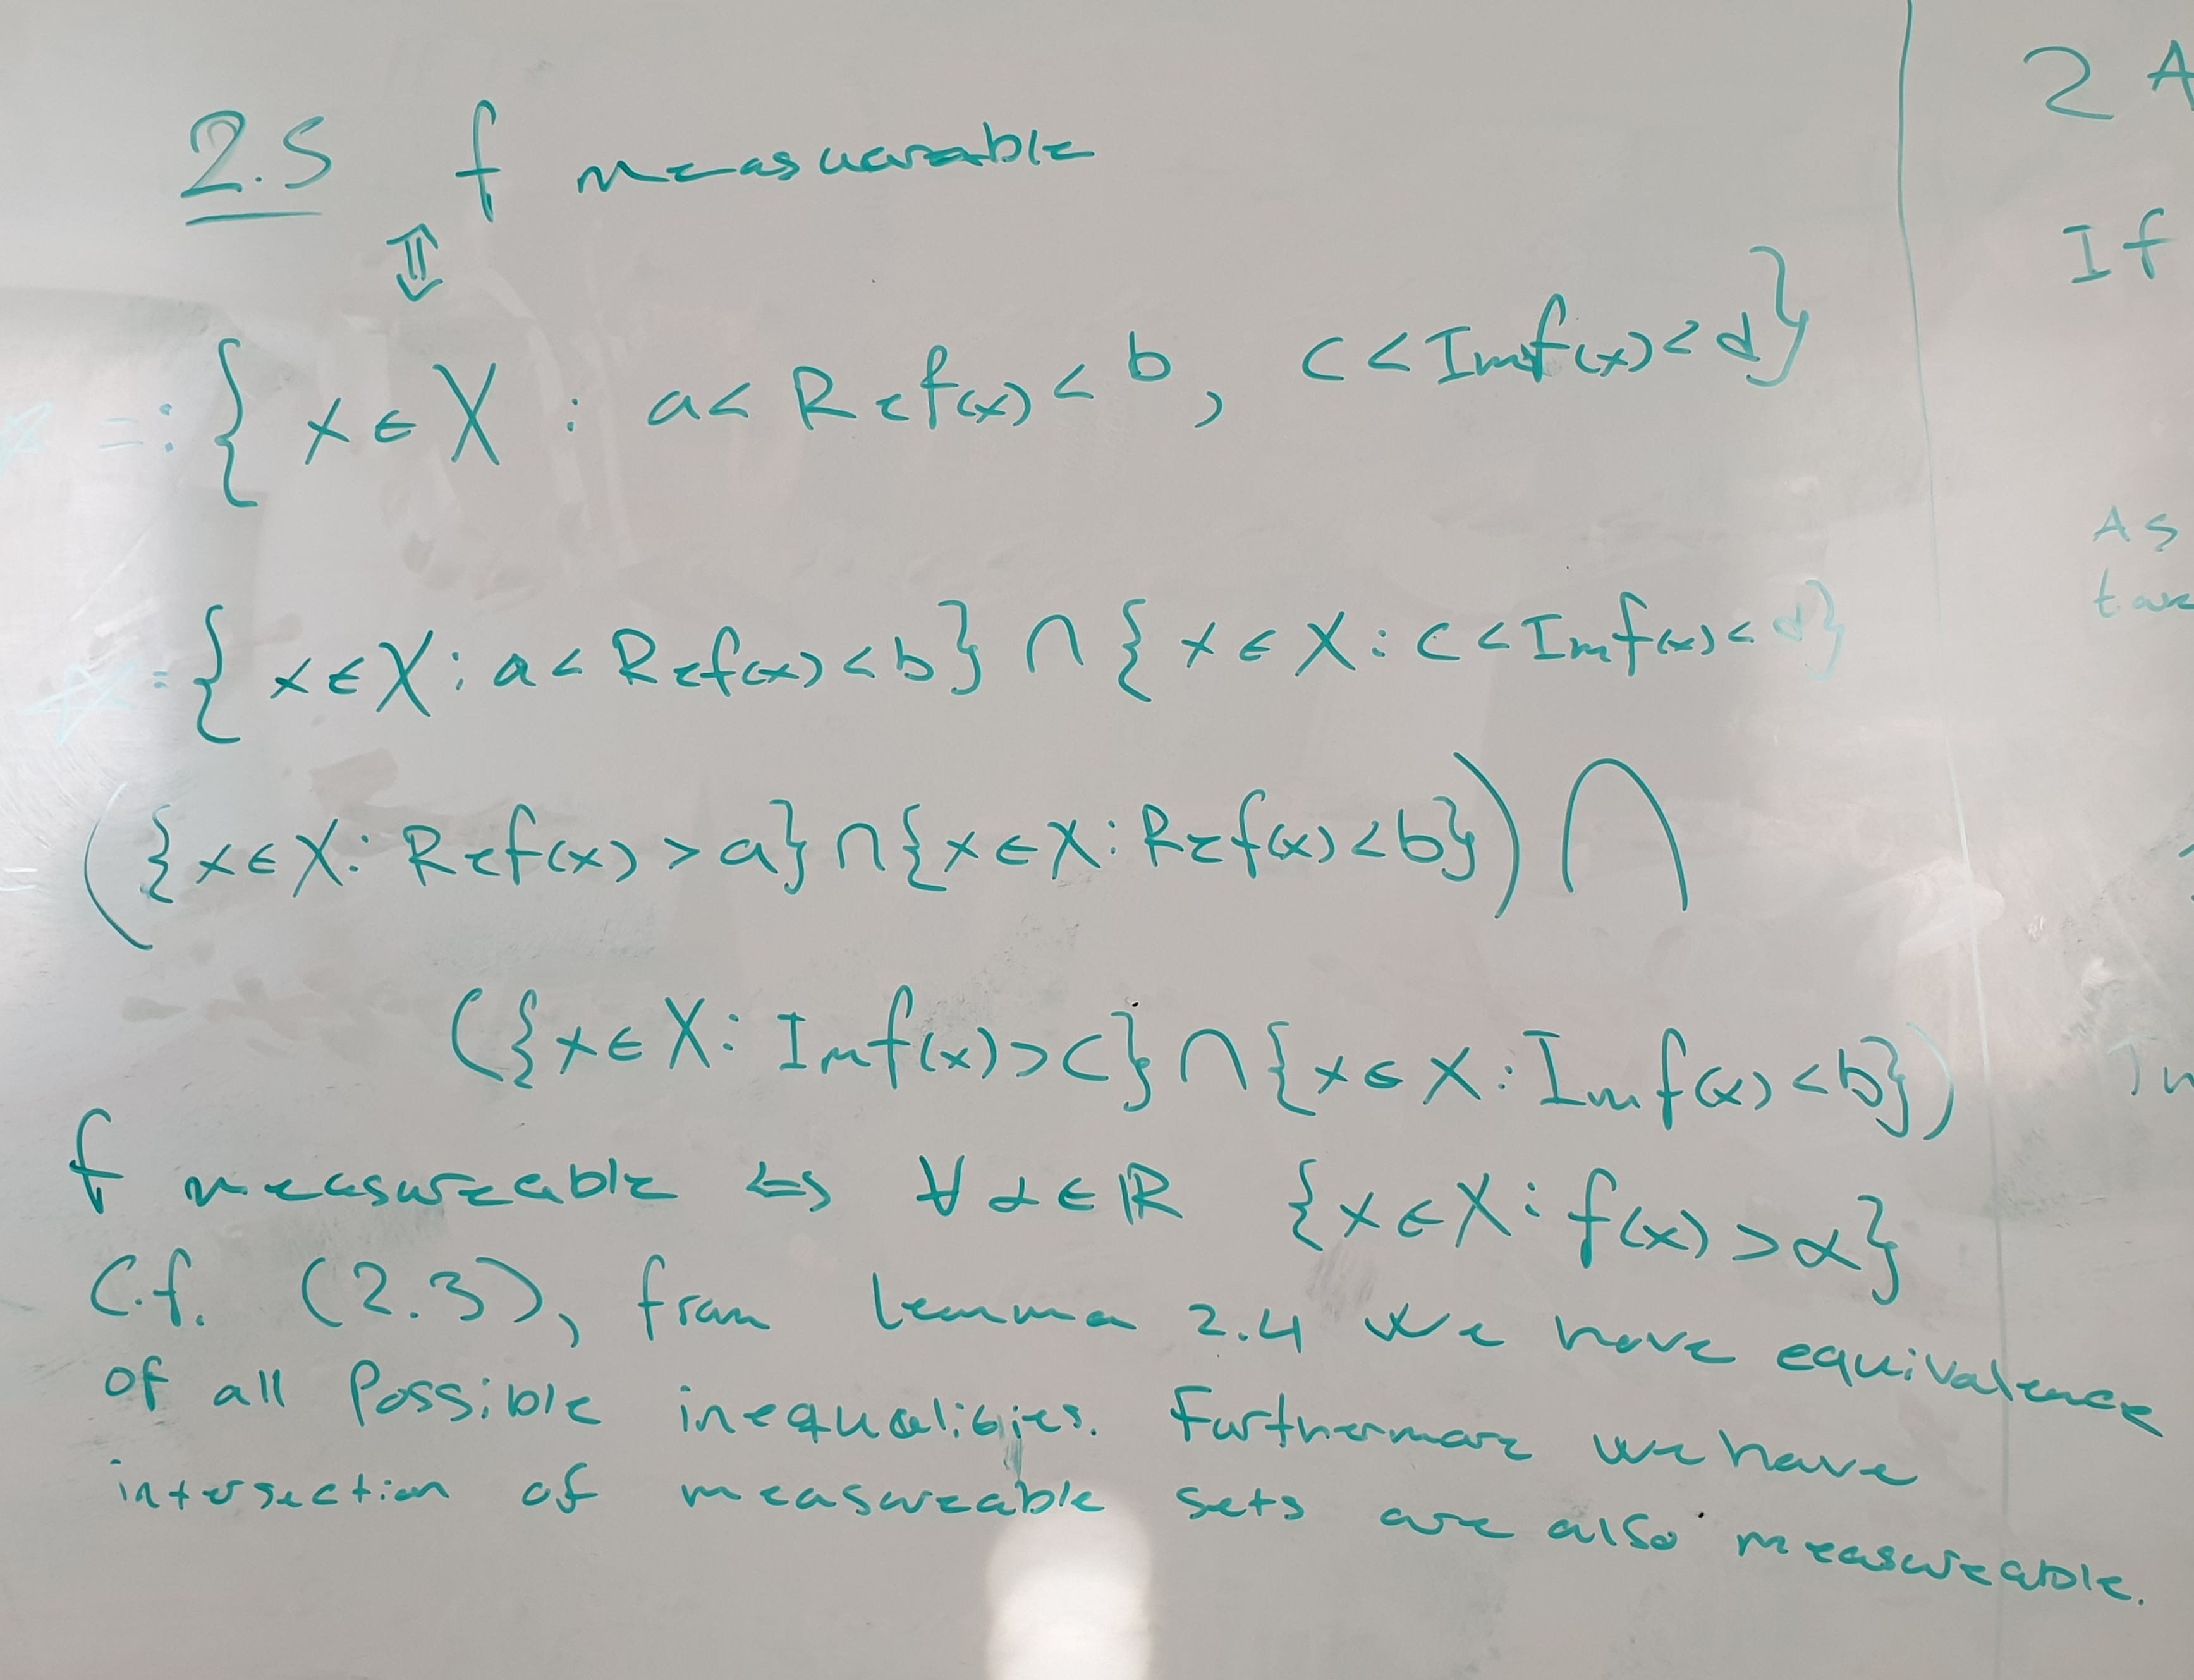 2.5 f measuareable
⇕
☆ =: { x ∈ X : a < Re f(x) < b, c < Im f(x) < d }
☆ = { x ∈ X : a < Re f(x) < b } ∩ { x ∈ X : c < Im f(x) < d }
= ( { x ∈ X : Re f(x) > a } ∩ { x ∈ X : Re f(x) < b } ) ∩
( { x ∈ X : Im f(x) > c } ∩ { x ∈ X : Im f(x) < b } )
f measureable ⇔ ∀ α ∈ ℝ { x ∈ X : f(x) > α }
C.f. (2.3), from lemma 2.4 we have equivalence
of all possible inequalities. Furthermore we have
intersection of measureable sets are also measureable.
2 A
If
As